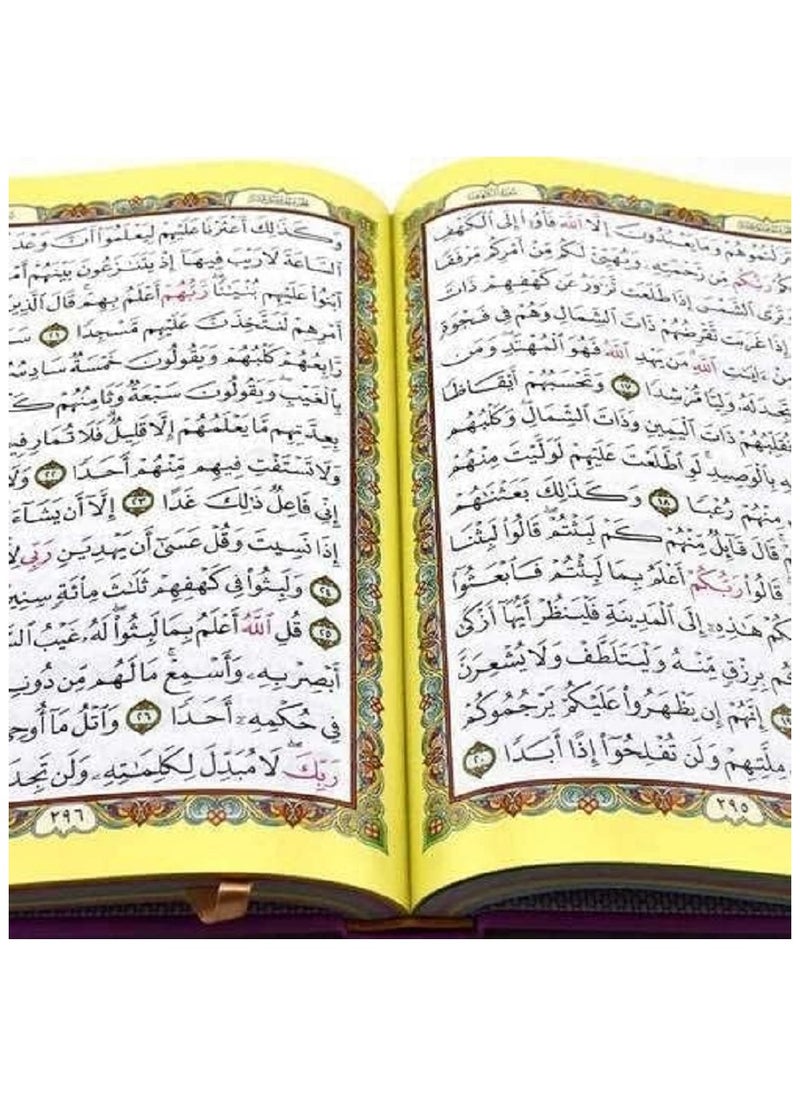 سُورَةُ الكَهْفِ
وَمَا يَعْبُدُونَ إِلَّا اللَّهَ فَأْوُۥٓا۟ إِلَى الْكَهْفِ
رَبُّكُم مِّن رَّحْمَتِهِۦ وَيُهَيِّئْ لَكُم مِّنْ أَمْرِكُم مِّرْفَقًا
وَتَرَى الشَّمْسَ إِذَا طَلَعَت تَّزَٰوَرُ عَن كَهْفِهِمْ ذَاتَ
إِذَا غَرَبَت تَّقْرِضُهُمْ ذَاتَ الشِّمَالِ وَهُمْ فِى فَجْوَةٍ
ءَايَٰتِ اللَّهِ مَن يَهْدِ اللَّهُ فَهُوَ الْمُهْتَدِ وَمَن
تَجِدَ لَهُۥ وَلِيًّا مُّرْشِدًا ١٧ وَتَحْسَبُهُمْ أَيْقَاظًا
ذَاتَ الْيَمِينِ وَذَاتَ الشِّمَالِ وَكَلْبُهُم
بِالْوَصِيدِ لَوِ اطَّلَعْتَ عَلَيْهِمْ لَوَلَّيْتَ مِنْهُمْ
مِنْهُمْ رُعْبًا ١٨ وَكَذَٰلِكَ بَعَثْنَٰهُمْ
قَالَ قَآئِلٌ مِّنْهُمْ كَمْ لَبِثْتُمْ قَالُوا۟ لَبِثْنَا
قَالُوا۟ رَبُّكُمْ أَعْلَمُ بِمَا لَبِثْتُمْ فَابْعَثُوٓا۟
هَٰذِهِۦٓ إِلَى الْمَدِينَةِ فَلْيَنظُرْ أَيُّهَآ أَزْكَىٰ
بِرِزْقٍ مِّنْهُ وَلْيَتَلَطَّفْ وَلَا يُشْعِرَنَّ
١٩ إِنَّهُمْ إِن يَظْهَرُوا۟ عَلَيْكُمْ يَرْجُمُوكُمْ
مِلَّتِهِمْ وَلَن تُفْلِحُوٓا۟ إِذًا أَبَدًا ٢٠
٢٩٥
وَكَذَٰلِكَ أَعْثَرْنَا عَلَيْهِمْ لِيَعْلَمُوٓا۟ أَنَّ وَعْدَ
السَّاعَةَ لَا رَيْبَ فِيهَآ إِذْ يَتَنَٰزَعُونَ بَيْنَهُمْ
ابْنُوا۟ عَلَيْهِم بُنْيَٰنًا رَّبُّهُمْ أَعْلَمُ بِهِمْ قَالَ الَّذِينَ
أَمْرِهِمْ لَنَتَّخِذَنَّ عَلَيْهِم مَّسْجِدًا ٢١
رَّابِعُهُمْ كَلْبُهُمْ وَيَقُولُونَ خَمْسَةٌ
بِالْغَيْبِ وَيَقُولُونَ سَبْعَةٌ وَثَامِنُهُمْ
بِعِدَّتِهِم مَّا يَعْلَمُهُمْ إِلَّا قَلِيلٌ فَلَا تُمَارِ
وَلَا تَسْتَفْتِ فِيهِم مِّنْهُمْ أَحَدًا ٢٢
إِنِّى فَاعِلٌ ذَٰلِكَ غَدًا ٢٣ إِلَّآ أَن يَشَآءَ
إِذَا نَسِيتَ وَقُلْ عَسَىٰٓ أَن يَهْدِيَنِ رَبِّى
٢٤ وَلَبِثُوا۟ فِى كَهْفِهِمْ ثَلَٰثَ مِا۟ئَةٍ
٢٥ قُلِ اللَّهُ أَعْلَمُ بِمَا لَبِثُوا۟ لَهُۥ غَيْبُ
أَبْصِرْ بِهِۦ وَأَسْمِعْ مَا لَهُم مِّن
فِى حُكْمِهِۦٓ أَحَدًا ٢٦ وَاتْلُ مَآ
رَبِّكَ لَا مُبَدِّلَ لِكَلِمَٰتِهِۦ وَلَن
٢٩٦